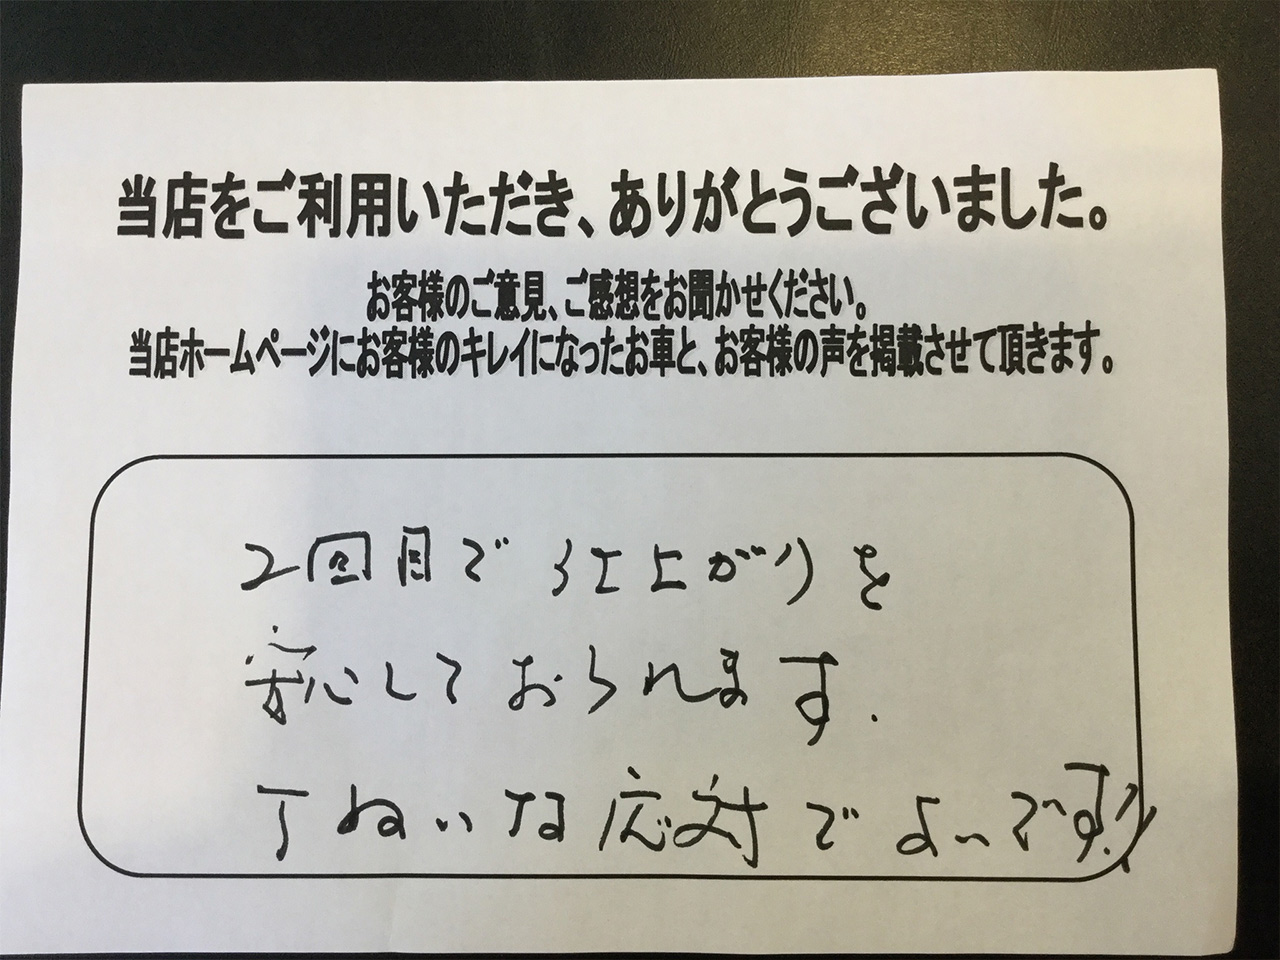 当店をご利用いただき、ありがとうございました。
お客様のご意見、ご感想をお聞かせください。
当店ホームページにお客様のキレイになったお車と、お客様の声を掲載させて頂きます。
2回目で仕上がりを
安心しておられます.
丁ねいな応対でよいです!!